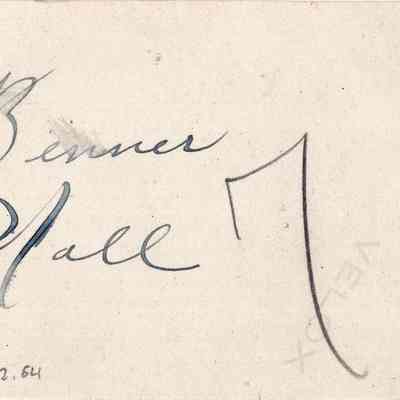 Benner
Hall
7
2.64
VELOX